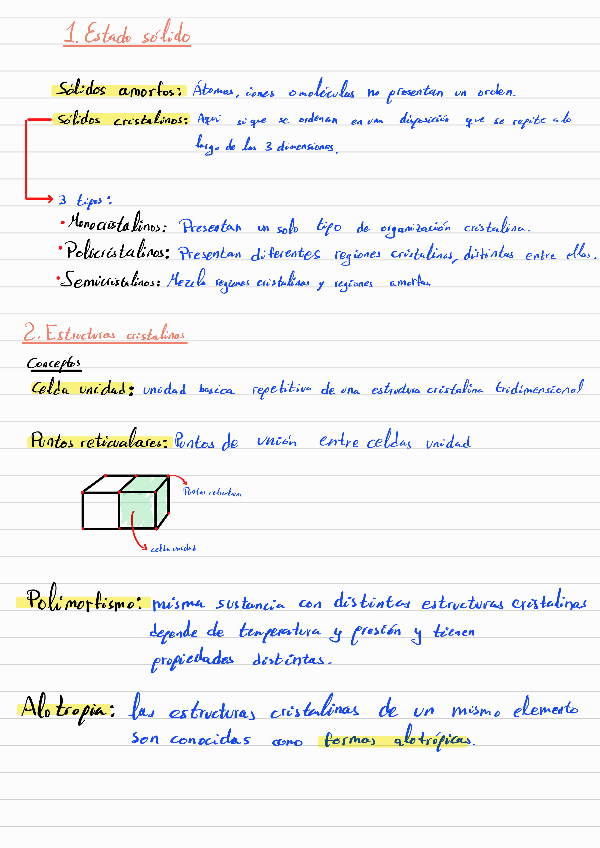 1. Estado sólido
Sólidos amorfos: Átomos, iones o moléculas no presentan un orden.
Sólidos cristalinos: Aqui si que se ordenan en una disposición que se repite a lo
largo de las 3 dimensiones.
3 tipos:
• Monocristalinos: Presentan un solo tipo de organización cristalina.
• Policristalinos: Presentan diferentes regiones cristalinas, distintas entre ellas.
• Semicristalinos: Mezcla regiones cristalinas y regiones amorfas
2. Estructuras cristalinas
Conceptos
Celda unidad: unidad basica repetitiva de una estructura cristalina tridimensional
Puntos reticualares: Puntos de unión entre celdas unidad
Puntos reticulares
celda unidad
Polimorfismo: misma sustancia con distintas estructuras cristalinas
depende de temperatura y presión y tienen
propiedades distintas.
Alotropia: las estructuras cristalinas de un mismo elemento
son conocidas como formas alotrópicas.